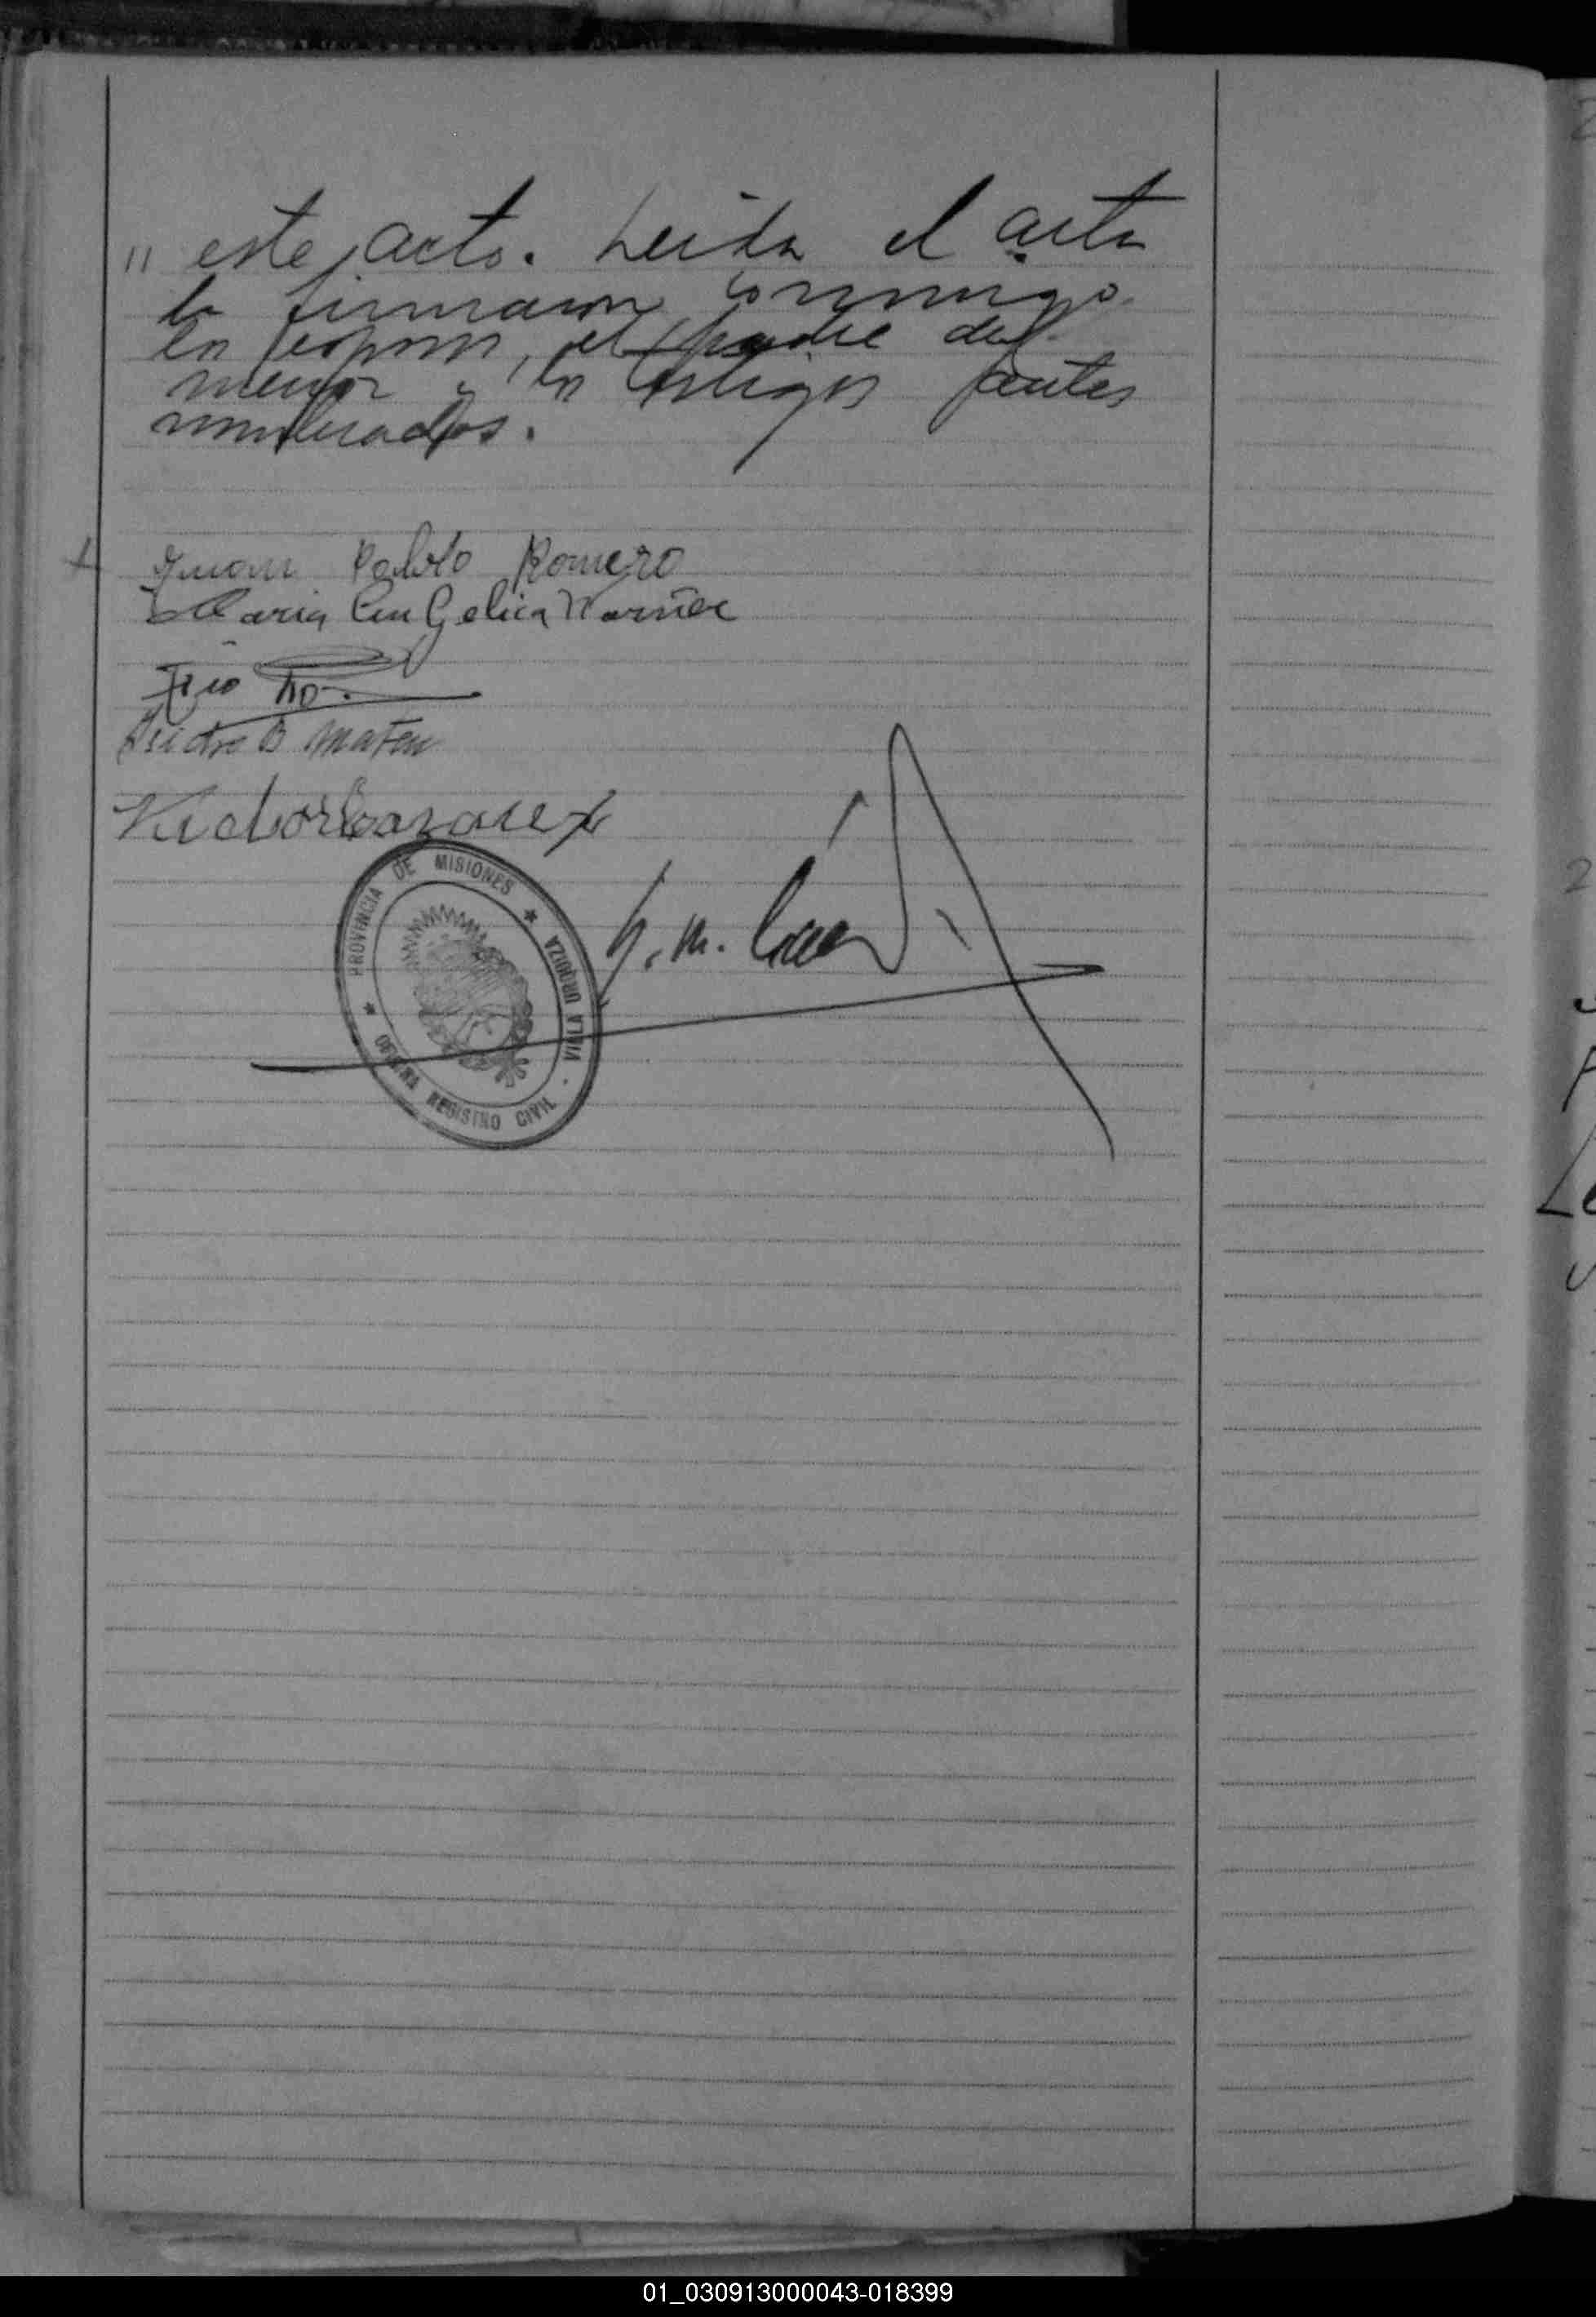 " este acto. Leida el acta
la firmaron conmigo
los esposos, el padre del
menor y los testigos antes
nombrados.
Juan Pablo Romero
Maria Angelica
Isidro B Mateu
Victor
PROVINCIA DE MISIONES * VILLA URQUIZA · OFICINA REGISTRO CIVIL *
01_030913000043-018399